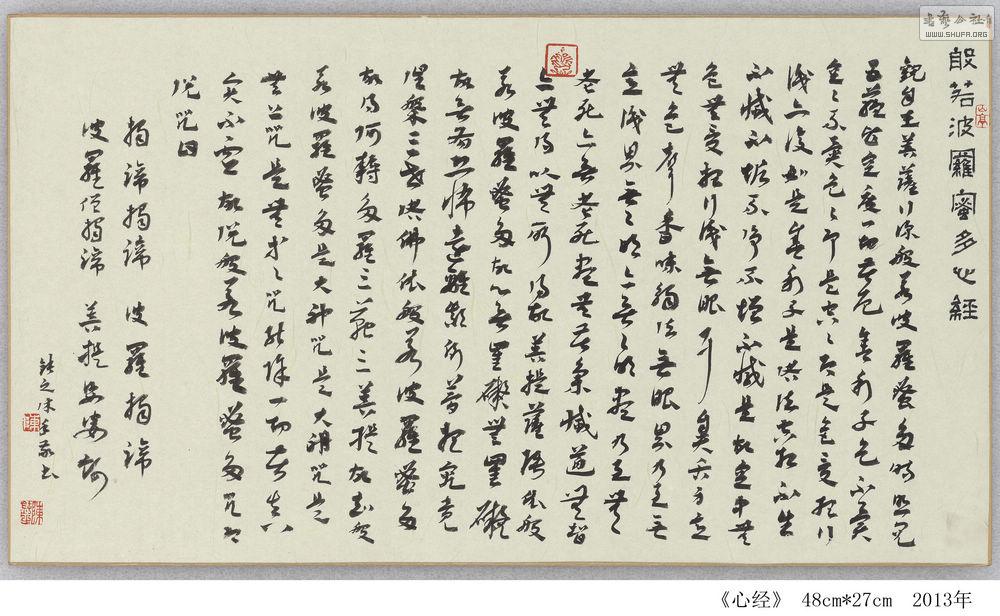 般若波羅蜜多心經
觀自在菩薩行深般若波羅蜜多時照見
五蘊皆空度一切苦厄舍利子色不異
空空不異色色即是空空即是色受想行
識亦復如是舍利子是諸法空相不生
不滅不垢不淨不增不減是故空中無
色無受想行識無眼耳鼻舌身意
無色聲香味觸法無眼界乃至無
意識界無無明亦無無明盡乃至無
老死亦無老死盡無苦集滅道無智
亦無得以無所得故菩提薩埵依般
若波羅蜜多故心無罣礙無罣礙
故無有恐怖遠離顛倒夢想究竟
涅槃三世諸佛依般若波羅蜜多
故得阿耨多羅三藐三菩提故知般
若波羅蜜多是大神咒是大明咒是
無上咒是無等等咒能除一切苦真
實不虛故說般若波羅蜜多咒即
說咒曰
揭諦揭諦 波羅揭諦
波羅僧揭諦 菩提娑婆訶
書
陳
書藝公社
WWW.SHUFA.ORG
《心经》 48cm*27cm 2013年